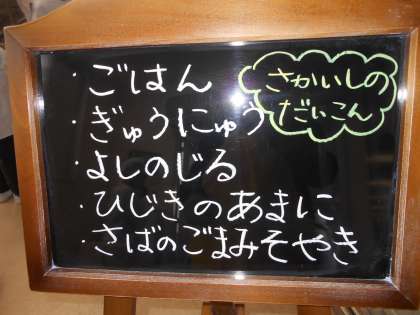 ・ごはん
・ぎゅうにゅう
・よしのじる
・ひじきのあまに
・さばのごまみそやき
さかいしの
だいこん